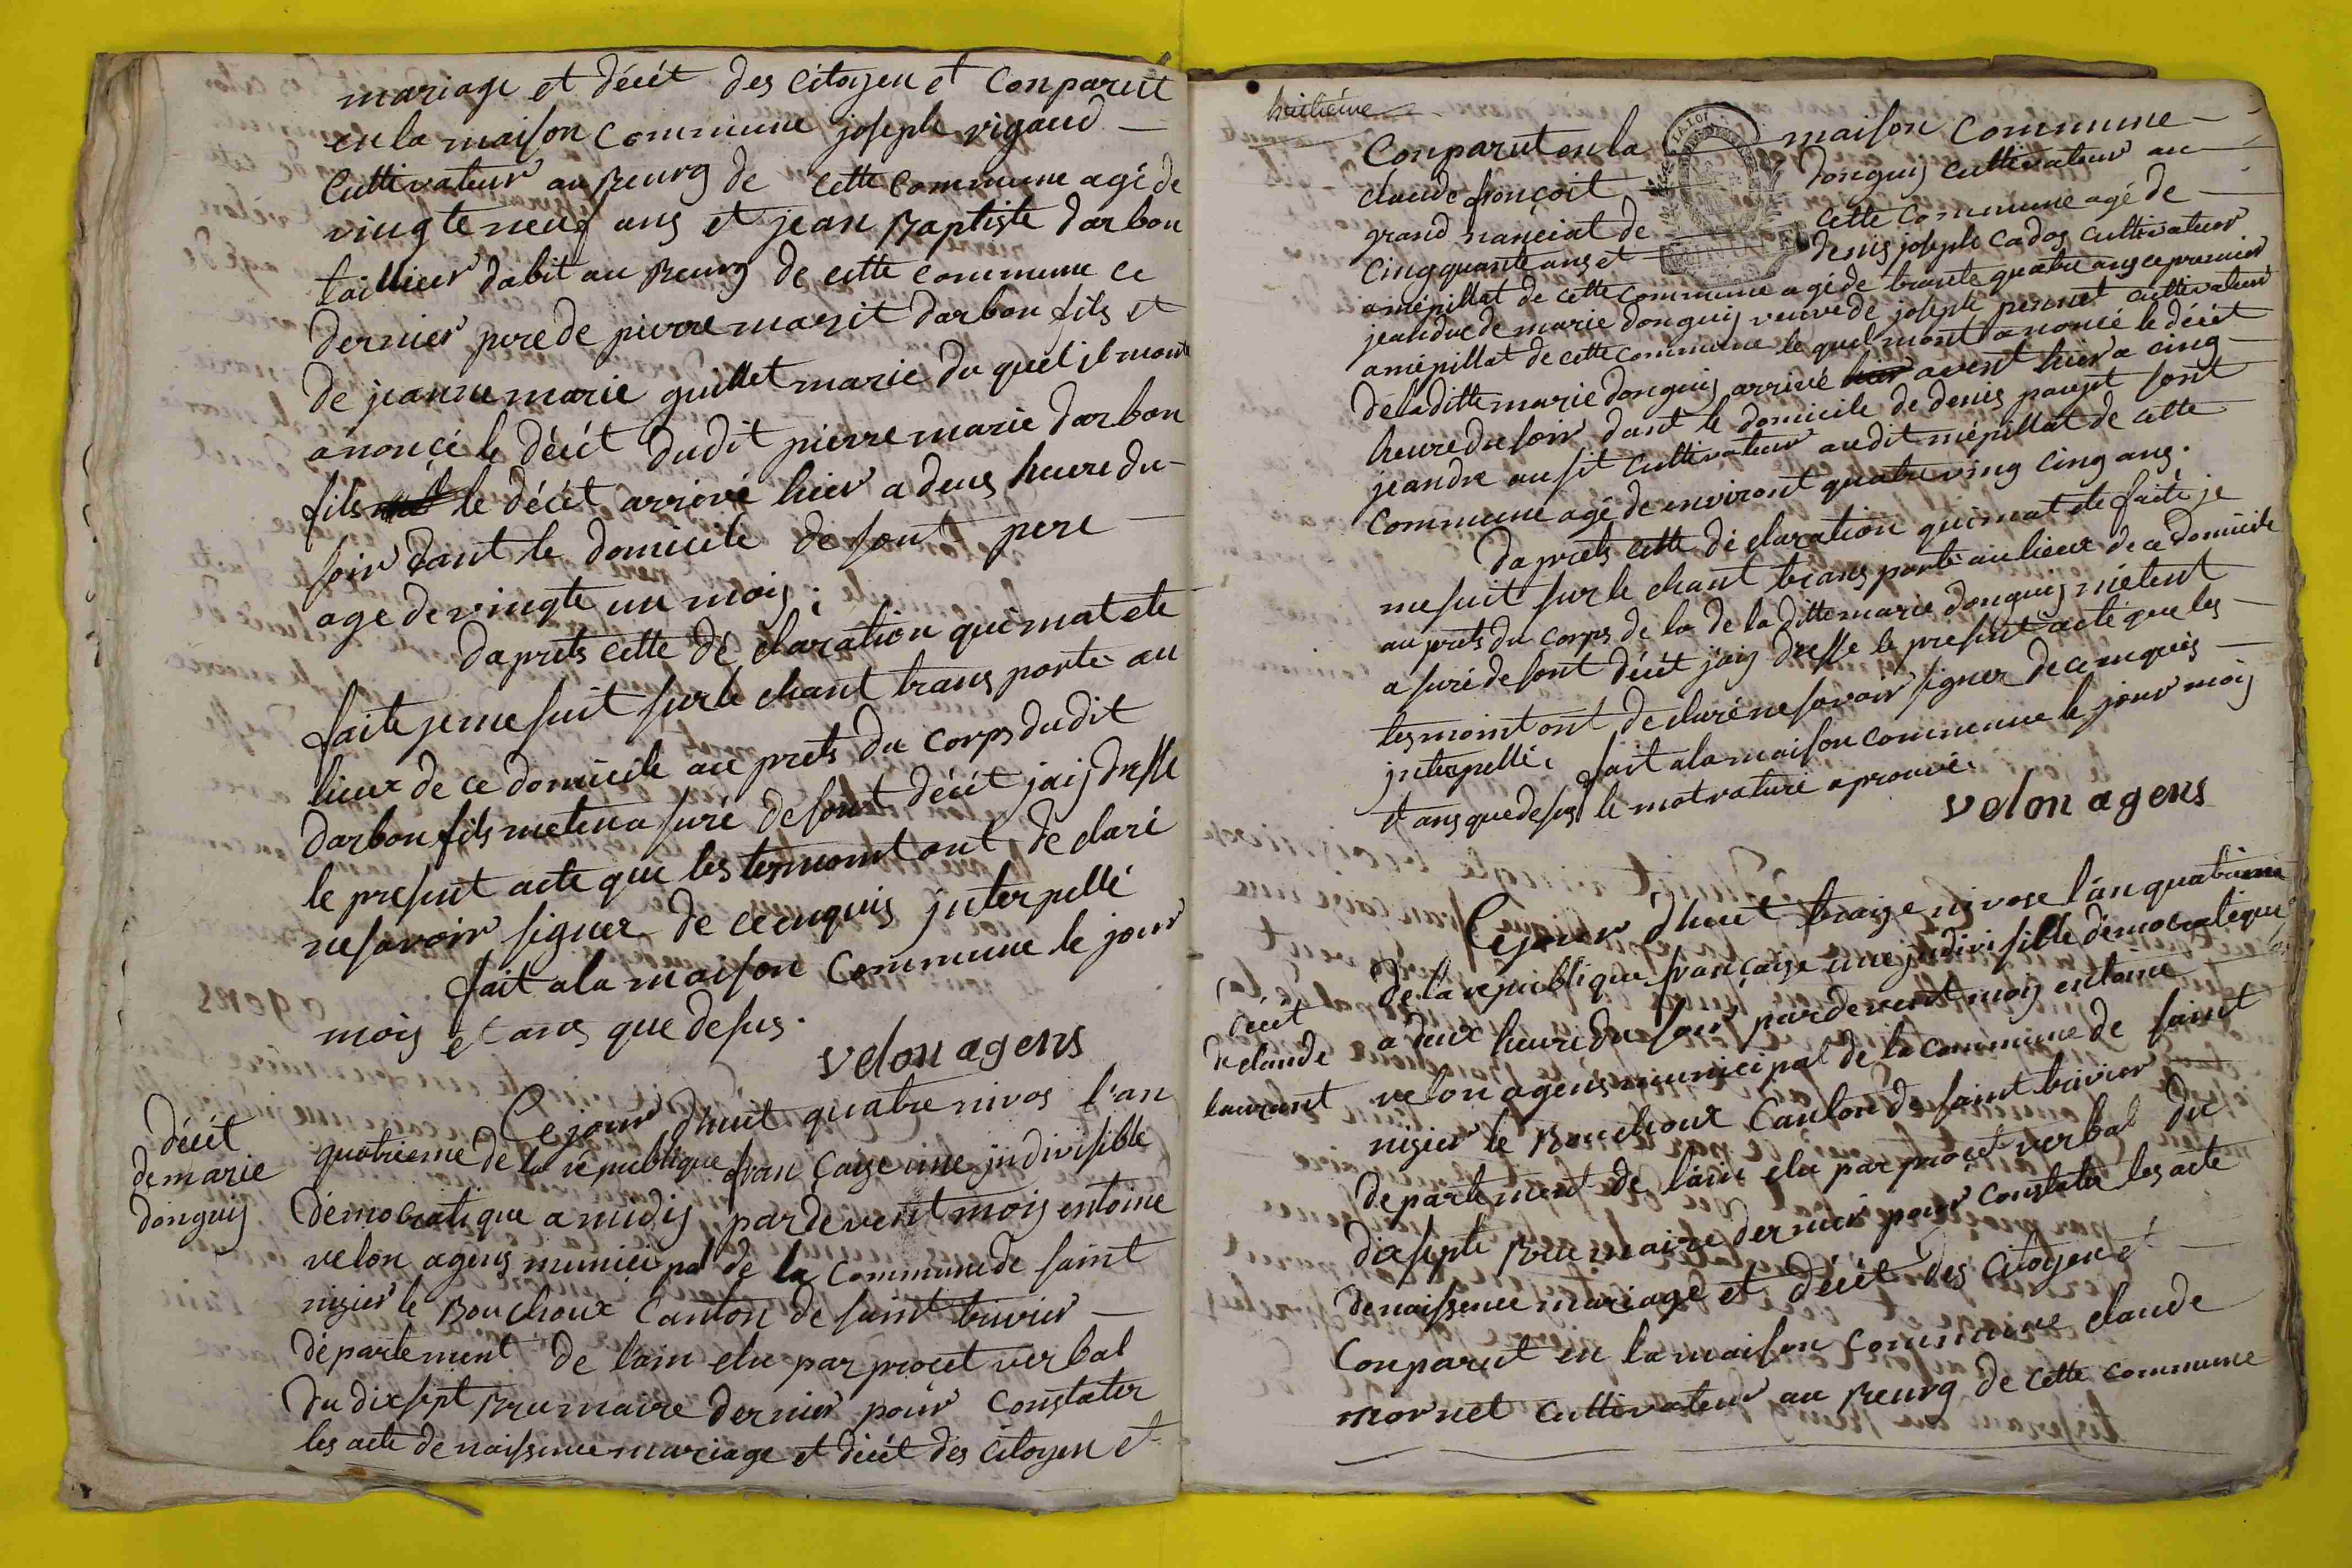 mariage et décét des citoyen et Conparut
en la maison commune joseph rigaud
Cultivateur au Bourg de cette commune agé de
vingte neuf ans et jean Baptiste darbon
taillieur dabit au Bourg de cette commune ce
dernier pere de pierre marie darbon fils et
de jeanne marie guillet marie du quel il mont
anoncé le décét dudit pierre marie darbon
fils le décét arrivé hier a deus heure du
soir dant le domicile de sont pere
age de vingte un mois ;
daprets cette dé claration qui mat ete
faite je me suit sur le chant trans porte au
lieux de ce domicile au prets du corps dudit
darbon fils metena suré de sont décét jaij dresse
le present acte que les tesmoint ont de claré
ne savoir signer de ce enquis jnterpellé
fait a la maison commune le jour
mois et ans que desus.
velon agens
décét
de marie
donguij
Ce jour dhuit quatre nivos l'an
quatrieme de la républigue fran caize une jndivisible
démocratique a midij pardevent moij entoine
velon agens municipal de la commune de saint
nizier le Bouchoux Canton de saint trivier
département de lain elu par procet verbal
du dixsept Brumaire dernier pour Constater
les acte de naissence mariage et décét des citoyen et
huitiéme
Conparut en la maison commune
claude françoit donguij cultivateur au
grand nanciat de cette commune agé de
cingquante ans et denis joseph cadoz cultivateur
a mépillat de cette commune agé de trante quatre ans ce premier
jeandre de marie donguij veuve de joseph pennet cultivateur
a mépillat de cette commune le quel mont anoncé le décét
de la ditte marie donguij arrivé avent hier a cing
heure du soir dant le domicile de denis pauget sont
jeandre ausit cultivateur audit mépillat de cette
commune agé de environt quatre ving cing ans.
daprets cette dé claration qui mat ete faite je
me suit sur le chant trans porte au lieux de ce domicile
au prets du corps de la de la ditte marie donguij mietent
a suré de sont décét jaij dresse le present acte que les
tesmoint ont declaré ne savoir signer de ce enquis
jnterpellé. fait a la maison commune le jour mois
et ans que desus le mot rature aprouvé.
velon agens
décét
de claude
laurent
Ce jour dhuit traize nivose l'an quatrieme
de la republique françaize une jndivisible démocratique
a deux heure du soir pardevent moij entoine
velon agens municipal de la commune de saint
nizier le Bouchoux Canton de saint trivier
departement de lain elu par procet verbal du
dixsepte Brumaire dernier pour constater les acte
de naissence mariage et décét des citoyen et
Conparut en la maison commune claude
mornet cultivateur au Bourg de cette commune